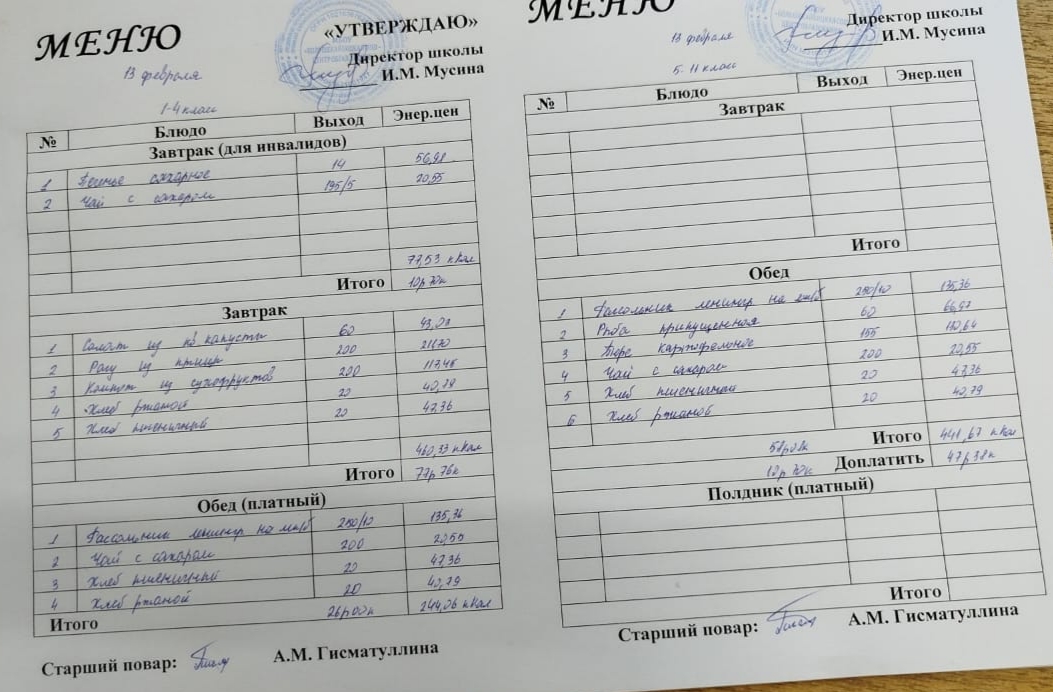 МЕНЮ
«УТВЕРЖДАЮ»
Директор школы
И.М. Мусина
13 февраля
1-4 класс
№ Блюдо Выход Энер.цен
Завтрак (для инвалидов)
1 Печенье сахарное 14 56,98
2 Чай с сахаром 195/5 20,55
77,53 кКал
Итого 10р 70к
Завтрак
1 Салат из капусты 60
2 Рагу из птицы 200
3 Компот из сухофруктов 200 117,45
4 Хлеб ржаной 20 40,79
5 Хлеб пшеничный 20 47,36
460,33 кКал
Итого 77р 76к
Обед (платный)
1 Рассольник ленингр на м/б 250/10 135,36
2 Чай с сахаром 200 20,55
3 Хлеб пшеничный 20 47,36
4 Хлеб ржаной 20 40,79
Итого 26р00к 244,06 кКал
Старший повар: А.М. Гисматуллина
МЕНЮ
Директор школы
И.М. Мусина
13 февраля
5-11 класс
№ Блюдо Выход Энер.цен
Завтрак
Итого
Обед
1 Рассольник ленингр на м/б 250/10 135,36
2 Рыба припущенная 60 66,97
3 Пюре картофельное 155 130,64
4 Чай с сахаром 200 20,55
5 Хлеб пшеничный 20 47,36
6 Хлеб ржаной 20 40,79
58р08к Итого 441,67 кКал
10р 70к Доплатить 47р38к
Полдник (платный)
Итого
Старший повар: А.М. Гисматуллина